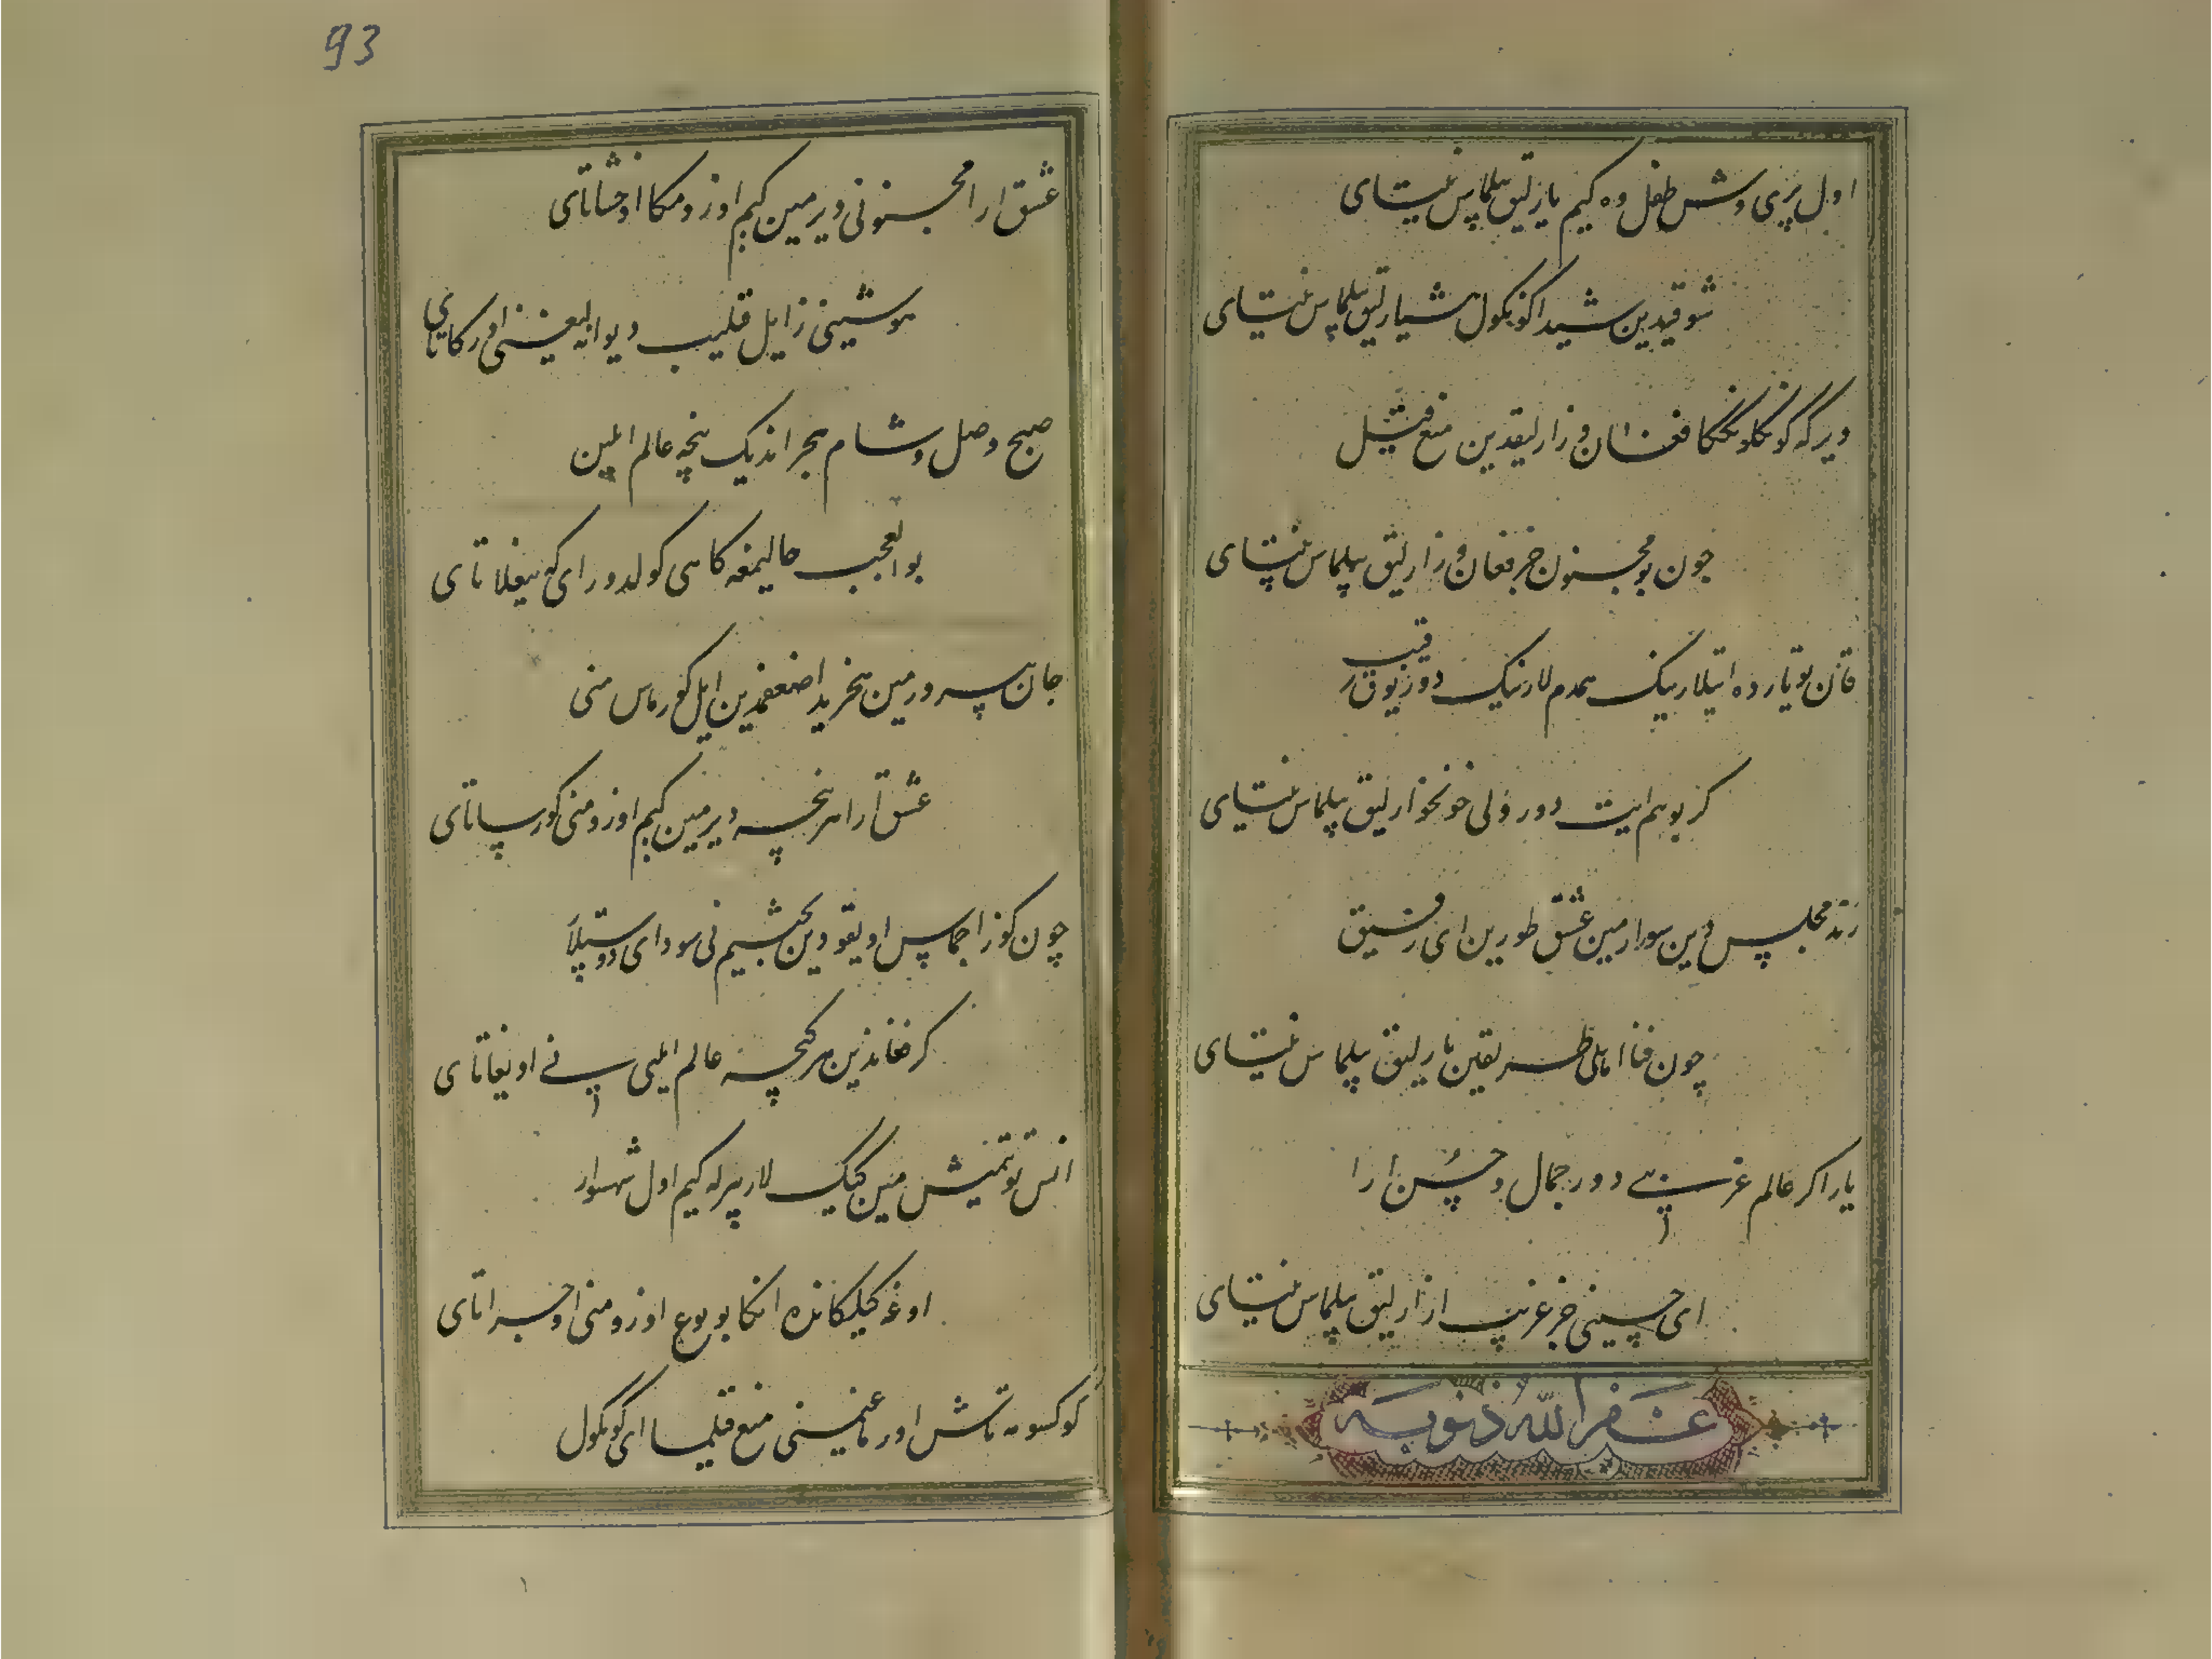 اول پری وش طفل وه کیم یارلیق بیلماس نیتای
شوقیدین شیدا کونکول هشیارلیق بیلماس نیتای
دیرکه کونکلونکنکا فغان و زارلیقدین منع قیل
چون بو مجنون جز فغان و زارلیق بیلماس نیتای
قان یوتارده ایتلارنینک همدم لارنینک دور رقیب
کر بو هم ایت دور ولی خونخوارلیق بیلماس نیتای
رند مجلس دین سورارمین عشق طورین ای رفیق
چون فنا اهلی طریقین بارلیق بیلماس نیتای
یار اکر عالم غریبی دور جمال و حسن ارا
ای حسینی جز غریب ازارلیق بیلماس نیتای
غفر الله ذنوبه
93
عشق ارا مجنونی دیرمین کیم اوزومکا اوخشاتای
هوشینی زایل قیلیب دیوانه‌لیغینی اورکاتای
صبح وصل و شام هجراندیک نیچه عالم ایلین
بوالعجب حالیمغه کاهی کولدورای که ییغلاتای
جان بیرورمین هجریدا ضعفمدین ایل کورماس منی
عشق ارا هر نیچه دیرمین کیم اوزومنی کورساتای
چون کوز اجماس اویقودین بختیم نی سودای دوستلار
کر فغاندین هر کیچه عالم ایلی نی اویغاتای
انس توتمیش مین کییک لار بیرله کیم اول شهسوار
اوغه کیلکانده انکا بو نوع اوزومنی اوخراتای
کوکسومه تاش اورماغیمنی منع قیلما ای کونکول